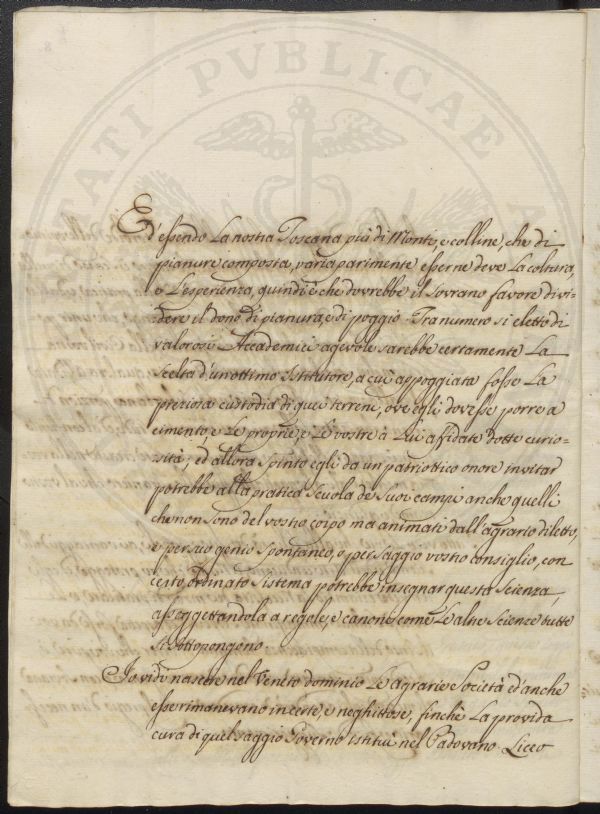 PVBLICAE
Ed'essendo La nostra Toscana più di Monti, e colline, che di
pianure composta, varia parimente esserne deve La coltura,
e L'esperienza, quindi è che dovrebbe il Sovrano favore divi-
dere il dono di pianura, e di poggio. Tra numero si eletto di
valorosi Accademici agevole sarebbe certamente La
scelta d'un ottimo Istitutore, a cui appoggiata fosse La
preziosa custodia di quei terreni, ove egli dovesse porre a
cimento, e Le proprie, e Le vostre à Lui affidate dotte curio-
sità; ed allora spinto egli da un patriotico onore invitar
potrebbe alla pratica scuola de suoi campi anche quelli
che non sono del vostro corpo ma animati dall'agrario diletto,
e per suo genio spontaneo, o per saggio vostro consiglio, con
certo, ordinato sistema potrebbe insegnar questa Scienza,
assoggettandola a regole, e canoni come Le altre Scienze tutte
si sottopongono.
Io vidi nascere nel Veneto dominio Le Agrarie Società ed'anche
esse rimanevano incerte, e neghittose, finchè La provida
cura di quel saggio Governo istituì nel Padovano Liceo